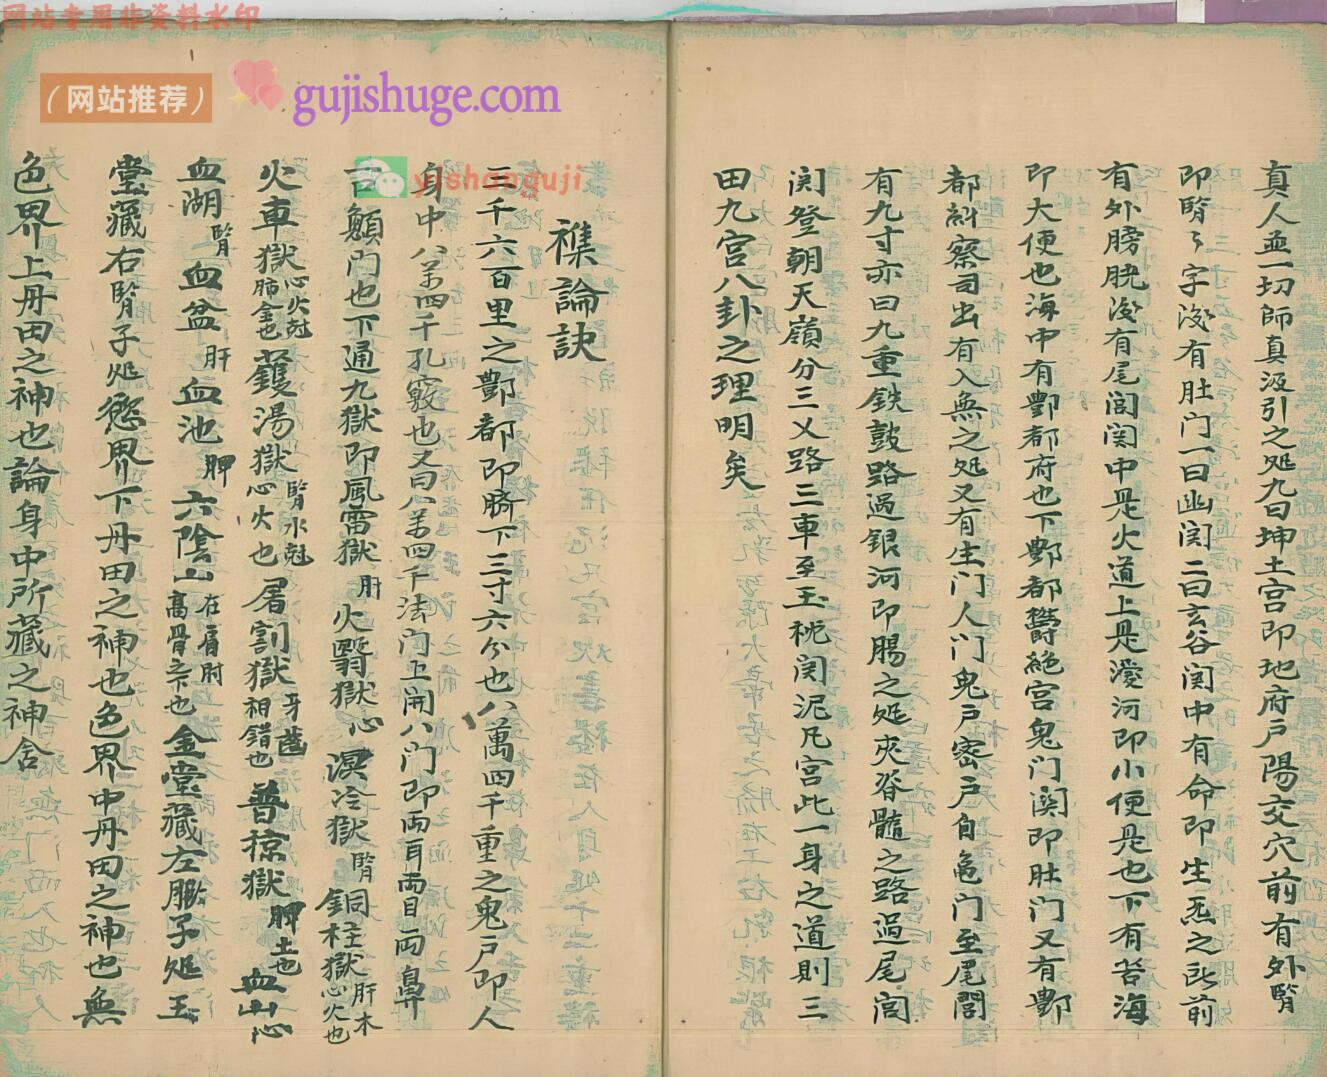 网站专用非资料水印
（网站推荐）
gujishuge.com
yishanguji
真人並一切師真汲引之処九曰坤土宫即地府戸陽交穴前有外腎
即腎々字後有肚门一曰幽関二曰玄谷関中有命即生死之所前
有外膀胱後有尾闾関中是火道上是濙河即小便是也下有苦海
即大便也海中有酆都府也下酆都欝絶宫鬼门関即肚门又有酆
都糾察司出有入無之処又有生门人门鬼戸密戸自龟门至尾闾
有九寸亦曰九重鉄皷路過银河即腸之処夾脊髓之路過尾闾
関登朝天嶺分三乂路三車至玉枕関泥凡宫此一身之道則三
田九宫八卦之理明矣
襍論訣
三千六百里之酆都即臍下三寸六分也八萬四千重之鬼戸即人
身中八萬四千孔竅也又曰八萬四千法门上開八门即両耳両目両鼻
舌顖门也下通九獄即風雷獄肝火翳獄心溟冷獄腎銅柱獄肝木心火也
火車獄心火尅肺金也鑊湯獄腎水尅心火也屠割獄牙齒相錯也普掠獄脾土也血山心
血湖腎血盆肝血池脾六陰山在肩肘高骨之下也金堂藏左腎子処玉
堂藏右腎子処慾界下丹田之神也色界中丹田之神也無
色界上丹田之神也論身中所藏之神舍